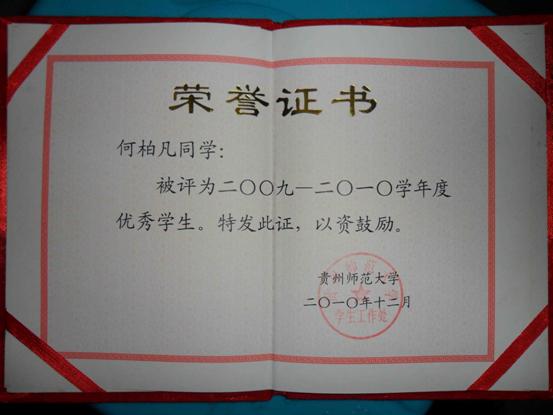 荣誉证书
何柏凡同学：
被评为二〇〇九—二〇一〇学年度
优秀学生。特发此证，以资鼓励。
贵州师范大学
二〇一〇年十二月
学生工作处